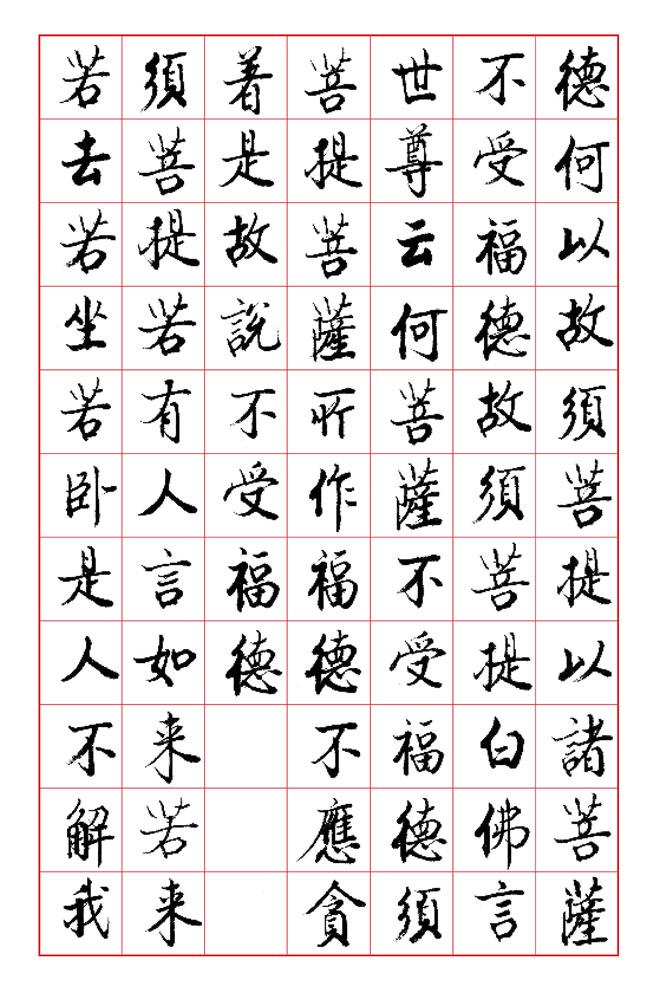 德何以故須菩提以諸菩薩
不受福德故須菩提白佛言
世尊云何菩薩不受福德須
菩提菩薩所作福德不應貪
着是故說不受福德
須菩提若有人言如来若来
若去若坐若卧是人不解我